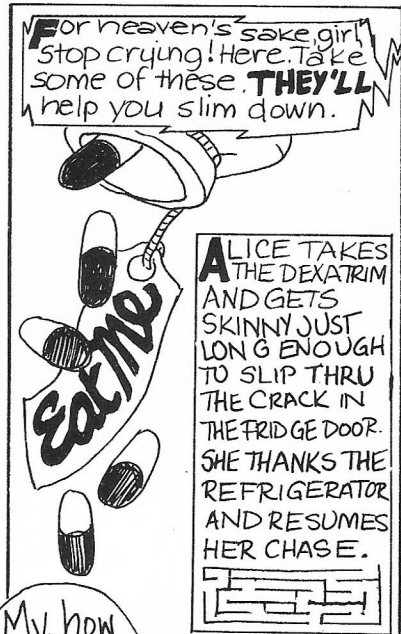 For heaven's sake, girl,
Stop crying! Here. Take
some of these. THEY'LL
help you slim down.
Eat Me
ALICE TAKES
THE DEXATRIM
AND GETS
SKINNY JUST
LONG ENOUGH
TO SLIP THRU
THE CRACK IN
THE FRIDGE DOOR.
SHE THANKS THE
REFRIGERATOR
AND RESUMES
HER CHASE.
My, how